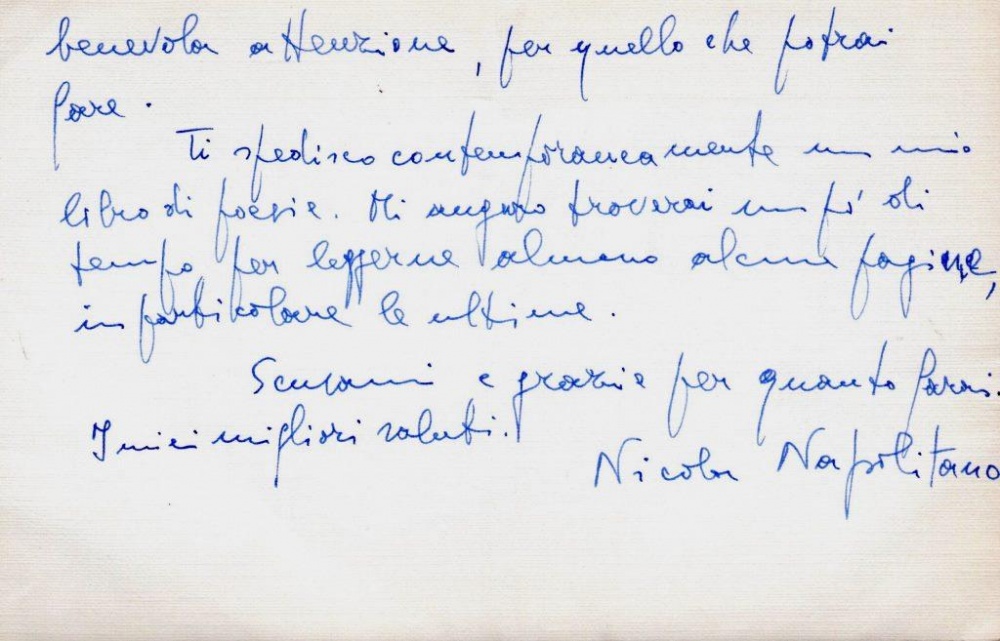 benevola attenzione, per quello che potrai
fare.
Ti spedisco contemporaneamente un mio
libro di poesie. Mi auguro troverai un pò di
tempo per leggerne almeno alcune pagine,
in particolare le ultime.
Scusami e grazie per quanto farai.
I miei migliori saluti.
Nicola Napolitano